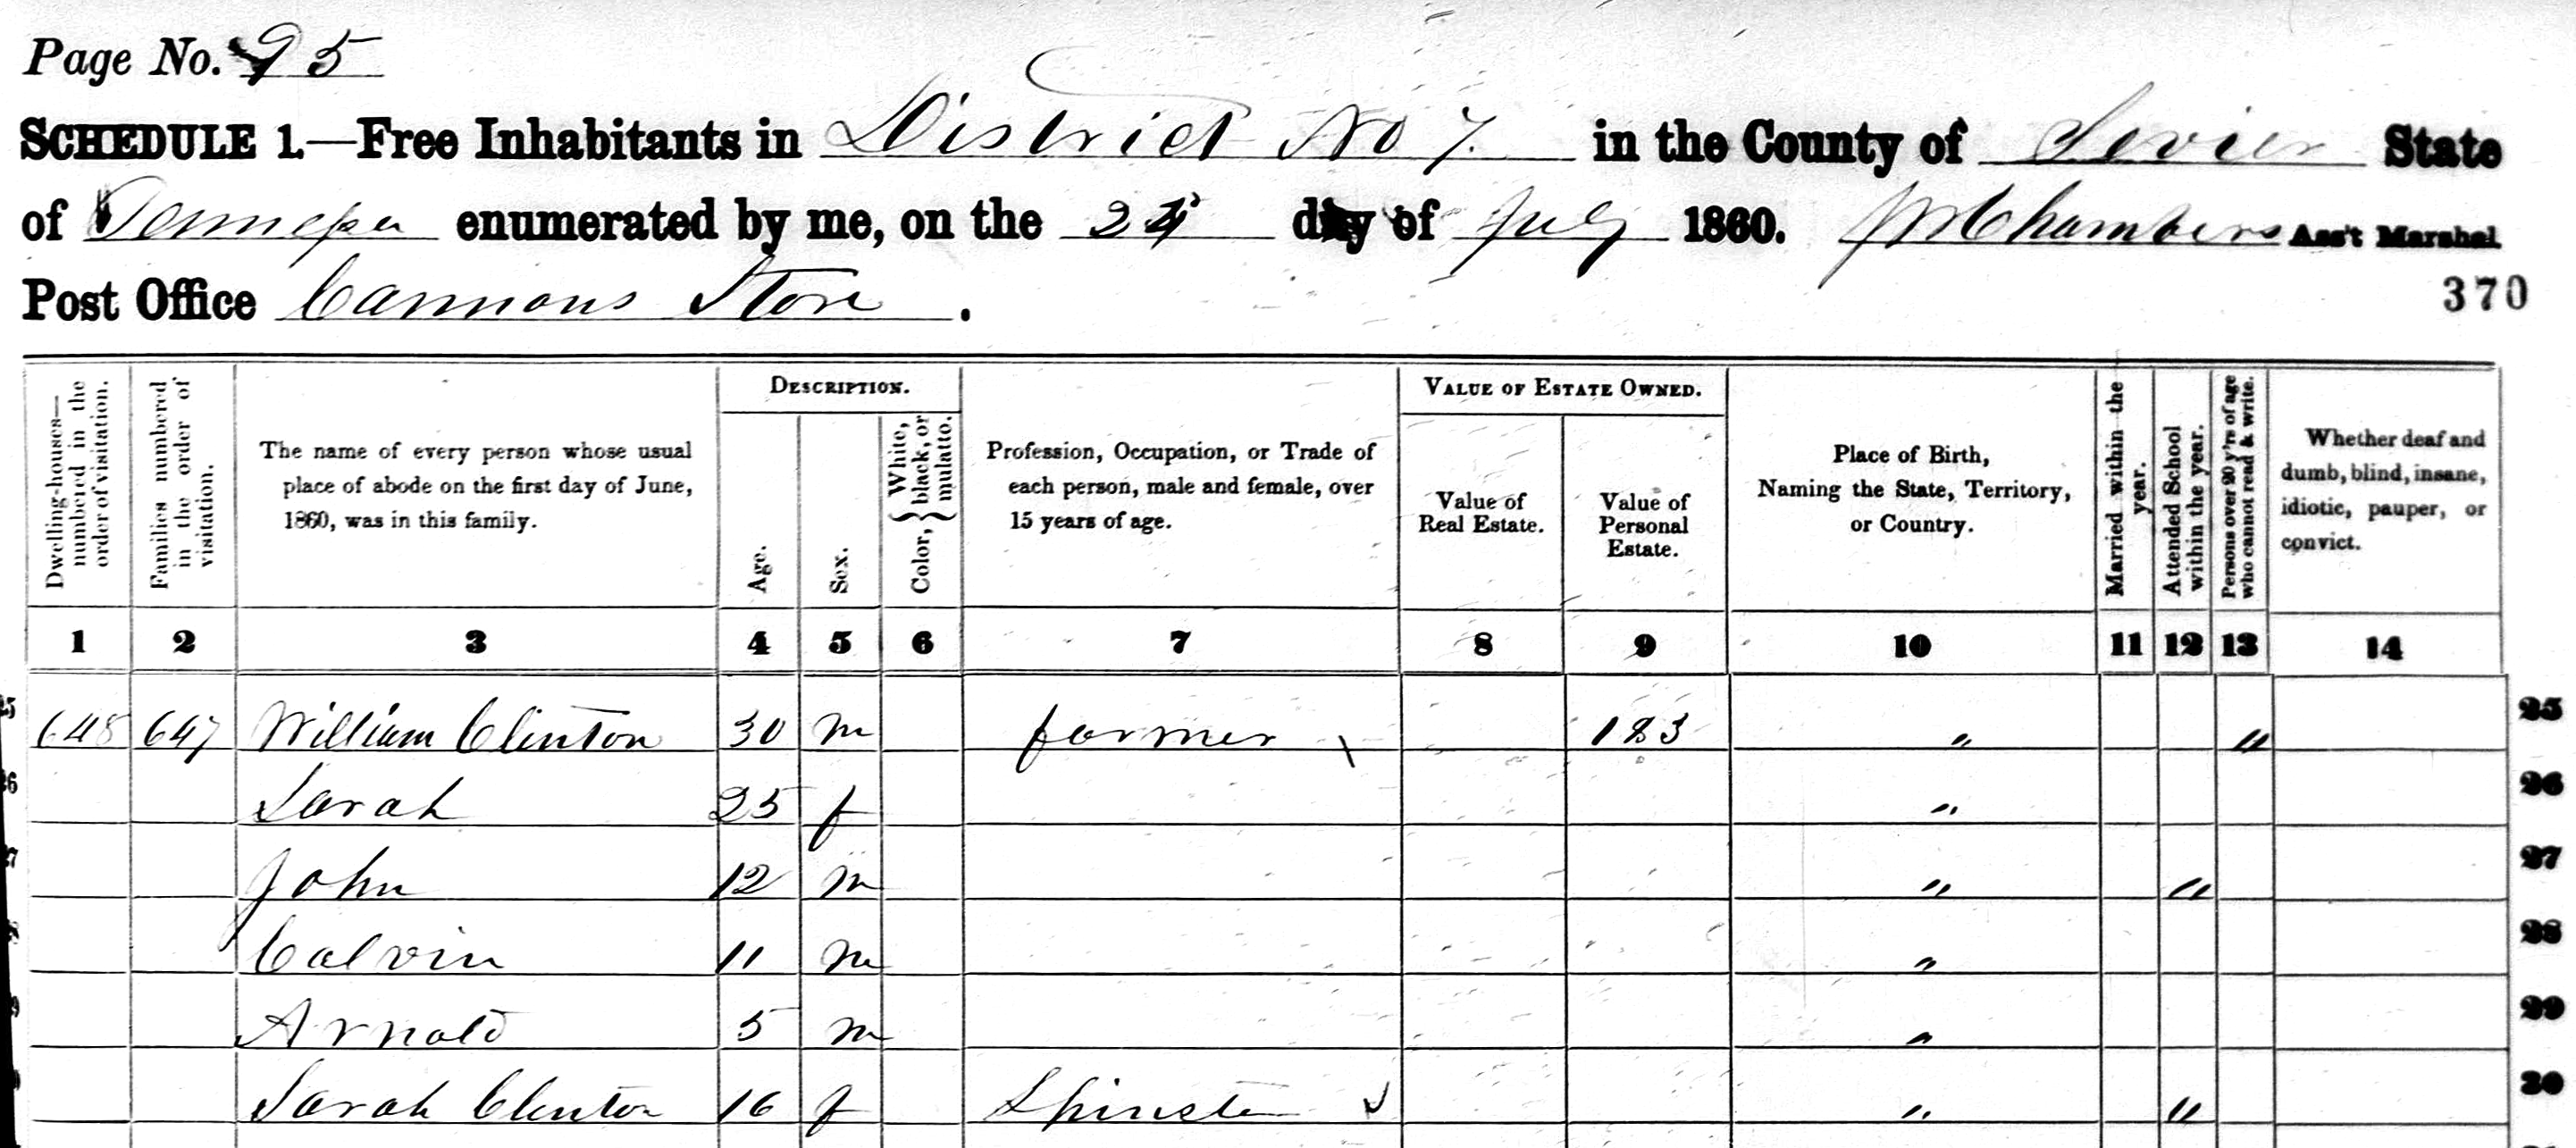 Page No. 95
SCHEDULE 1.—Free Inhabitants in District No 7. in the County of Sevier State
of Tennessee enumerated by me, on the 24 day of July 1860. J M Chambers Ass't Marshal
Post Office Cannons Store .
370
Dwelling-houses—numbered in the order of visitation.
Families numbered in the order of visitation.
The name of every person whose usual
place of abode on the first day of June,
1860, was in this family.
DESCRIPTION.
Age.
Sex.
Color, { White, black, or mulatto.
Profession, Occupation, or Trade of
each person, male and female, over
15 years of age.
VALUE OF ESTATE OWNED.
Value of
Real Estate.
Value of
Personal
Estate.
Place of Birth,
Naming the State, Territory,
or Country.
Married within the year.
Attended School within the year.
Persons over 20 y'rs of age who cannot read & write.
Whether deaf and
dumb, blind, insane,
idiotic, pauper, or
convict.
1 2 3 4 5 6 7 8 9 10 11 12 13 14
25 648 647 William Clinton 30 m farmer 123 " " 25
26 Sarah 25 f " 26
27 John 12 m " " 27
28 Calvin 11 m " 28
29 Arnold 5 m " 29
Sarah Clinton 16 f Spinster " " 30